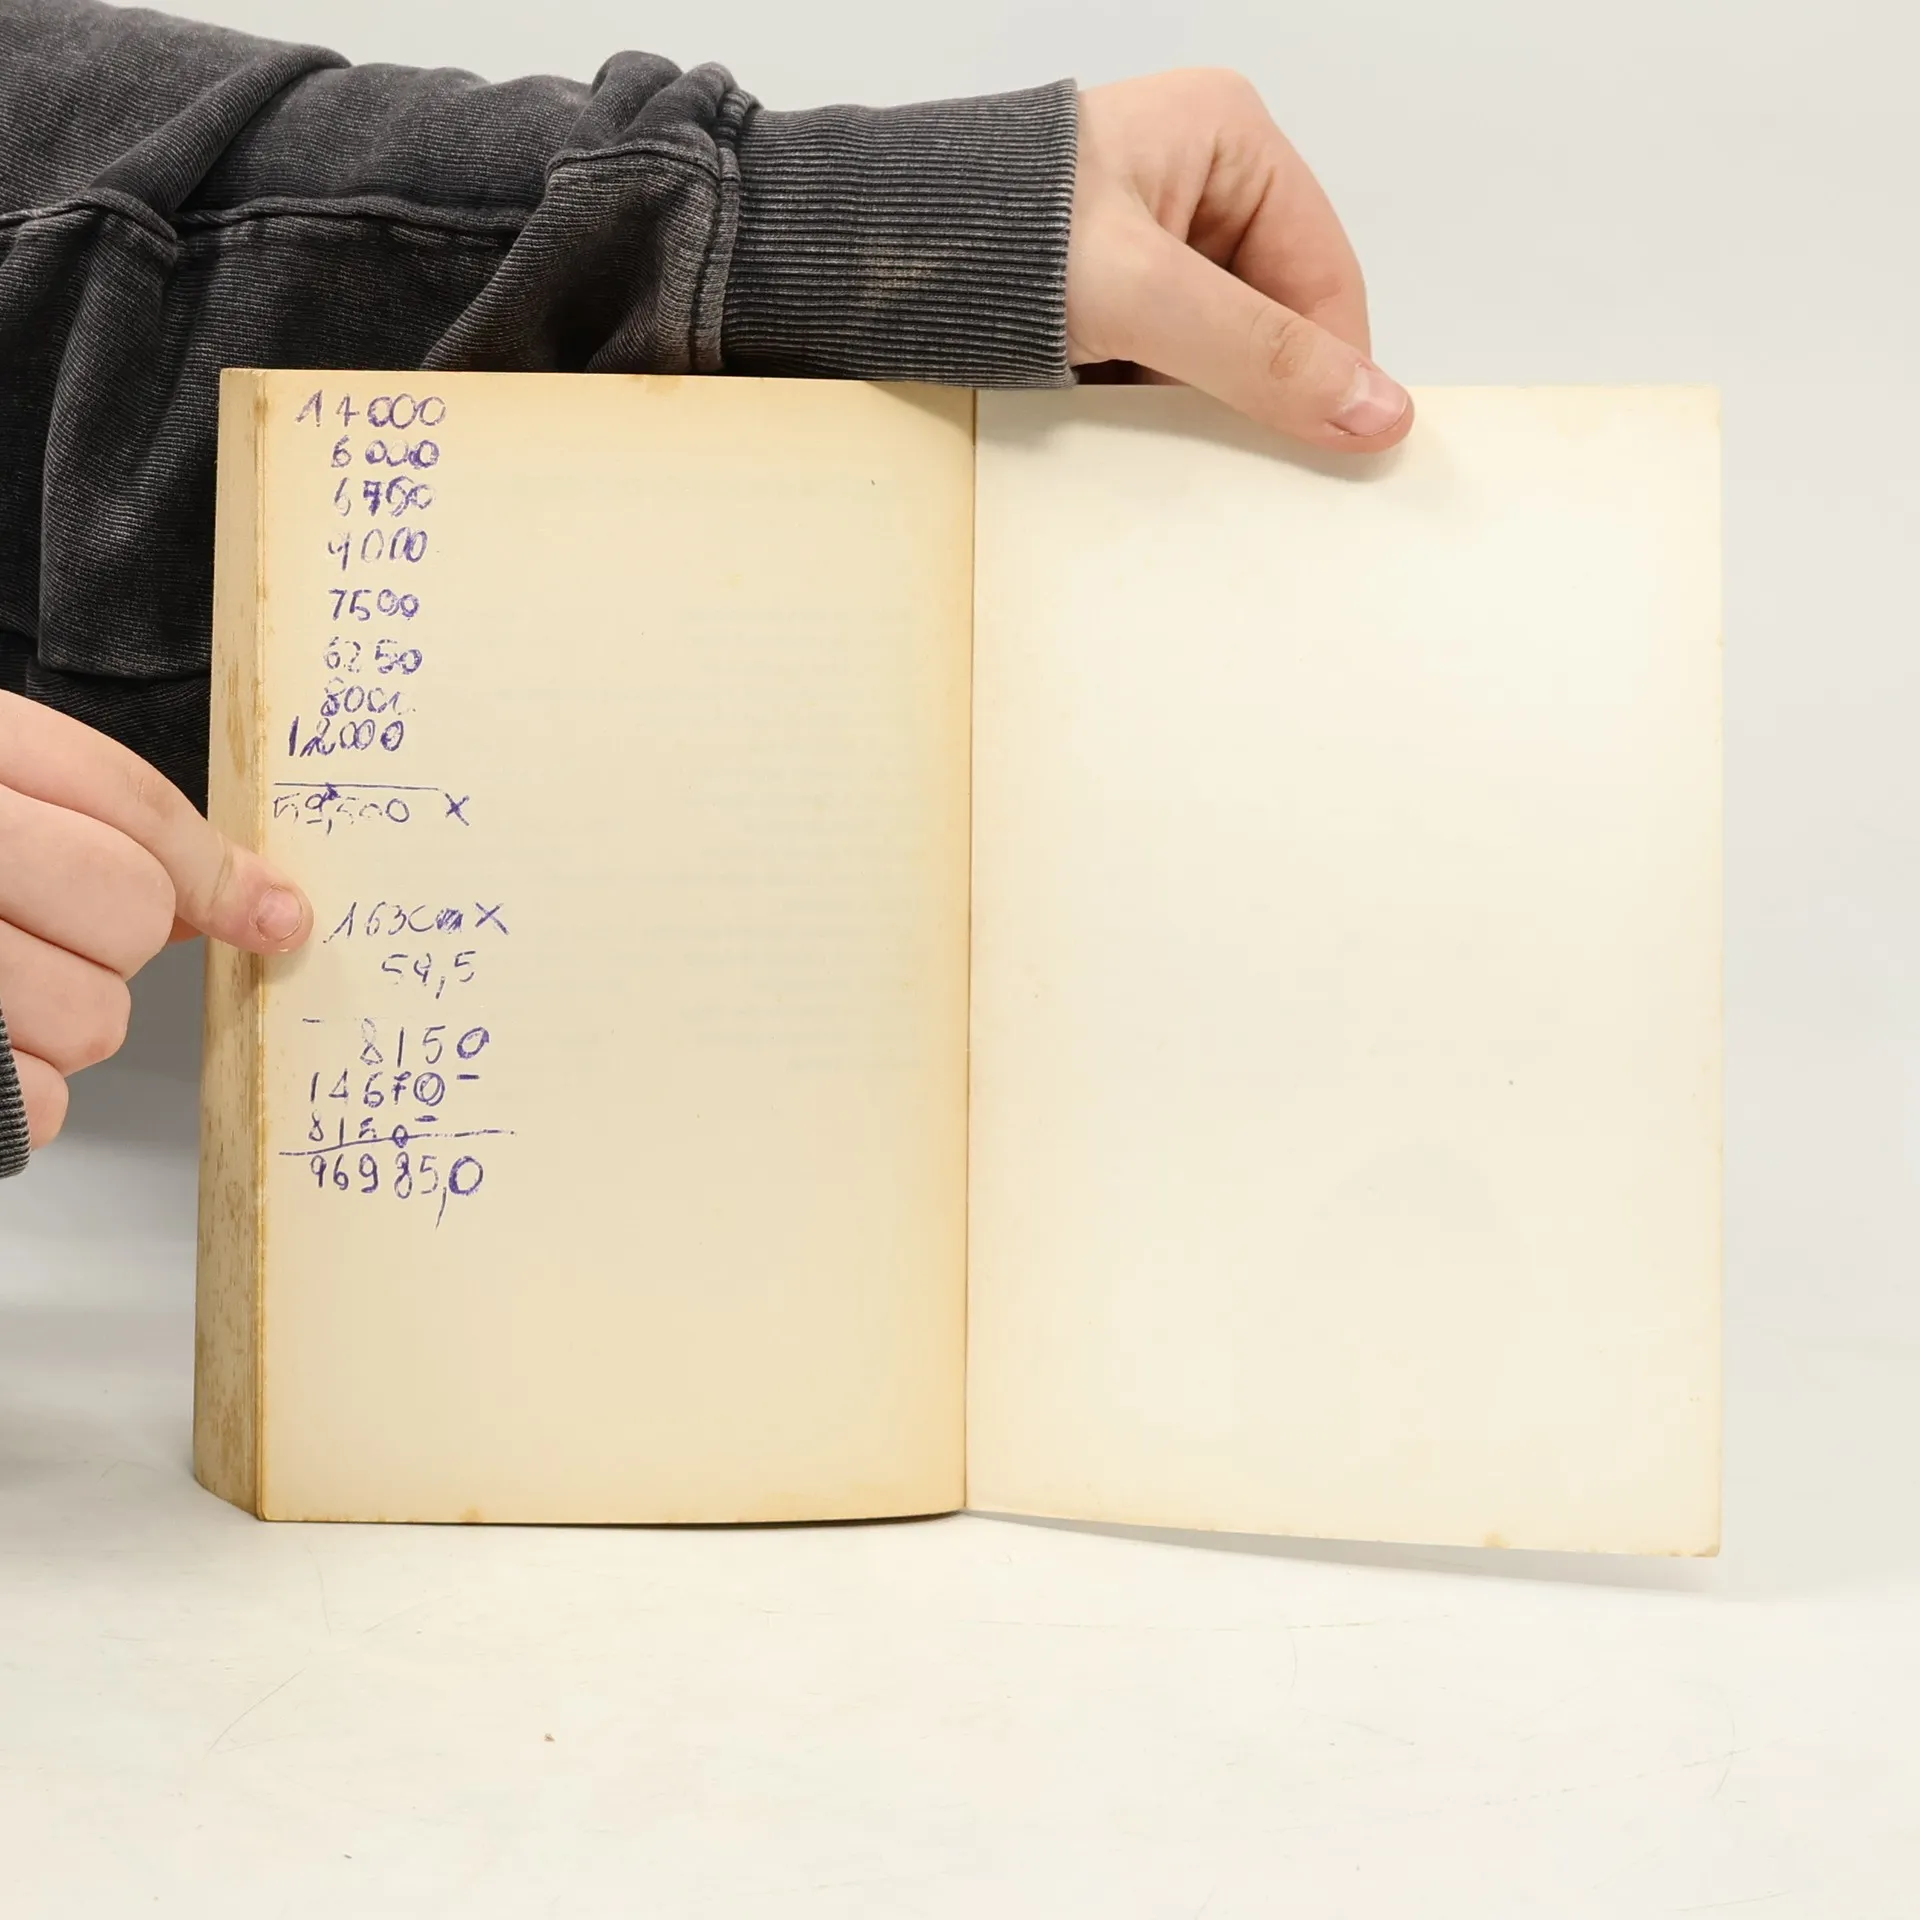 17000
6000
6750
4000
7500
6250
8000
12000
59,500 X
163cm X
59,5
8150
14670-
8150-
96985,0